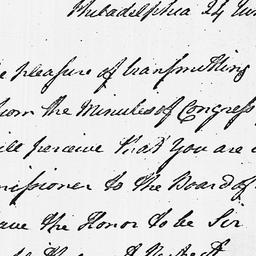 Philadelphia 24
pleasure of transmitting
from the Minutes of Congress
perceive that You are
to the Board of
the Honor to be Sir